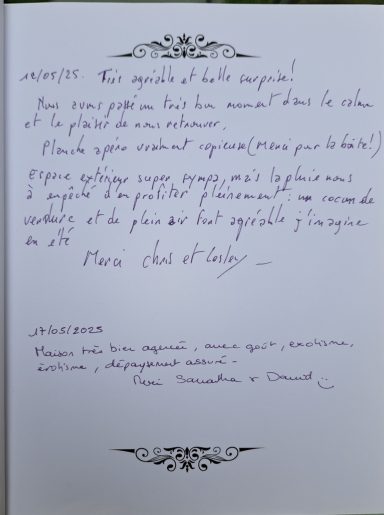 12/05/25. Très agréable et belle surprise!
Nous avons passé un très bon moment dans le calme
et le plaisir de nous retrouver.
Planche apéro vraiment copieuse (Merci pour la boîte!)
Espace extérieur super sympa, mais la pluie nous
à empêché d'en profiter pleinement : un cocon de
verdure et de plein air fort agréable j'imagine
en été
Merci Chris et Lesley
17/05/2025
Maison très bien agencée, avec goût, exotisme,
érotisme, dépaysement assuré -
Merci & David